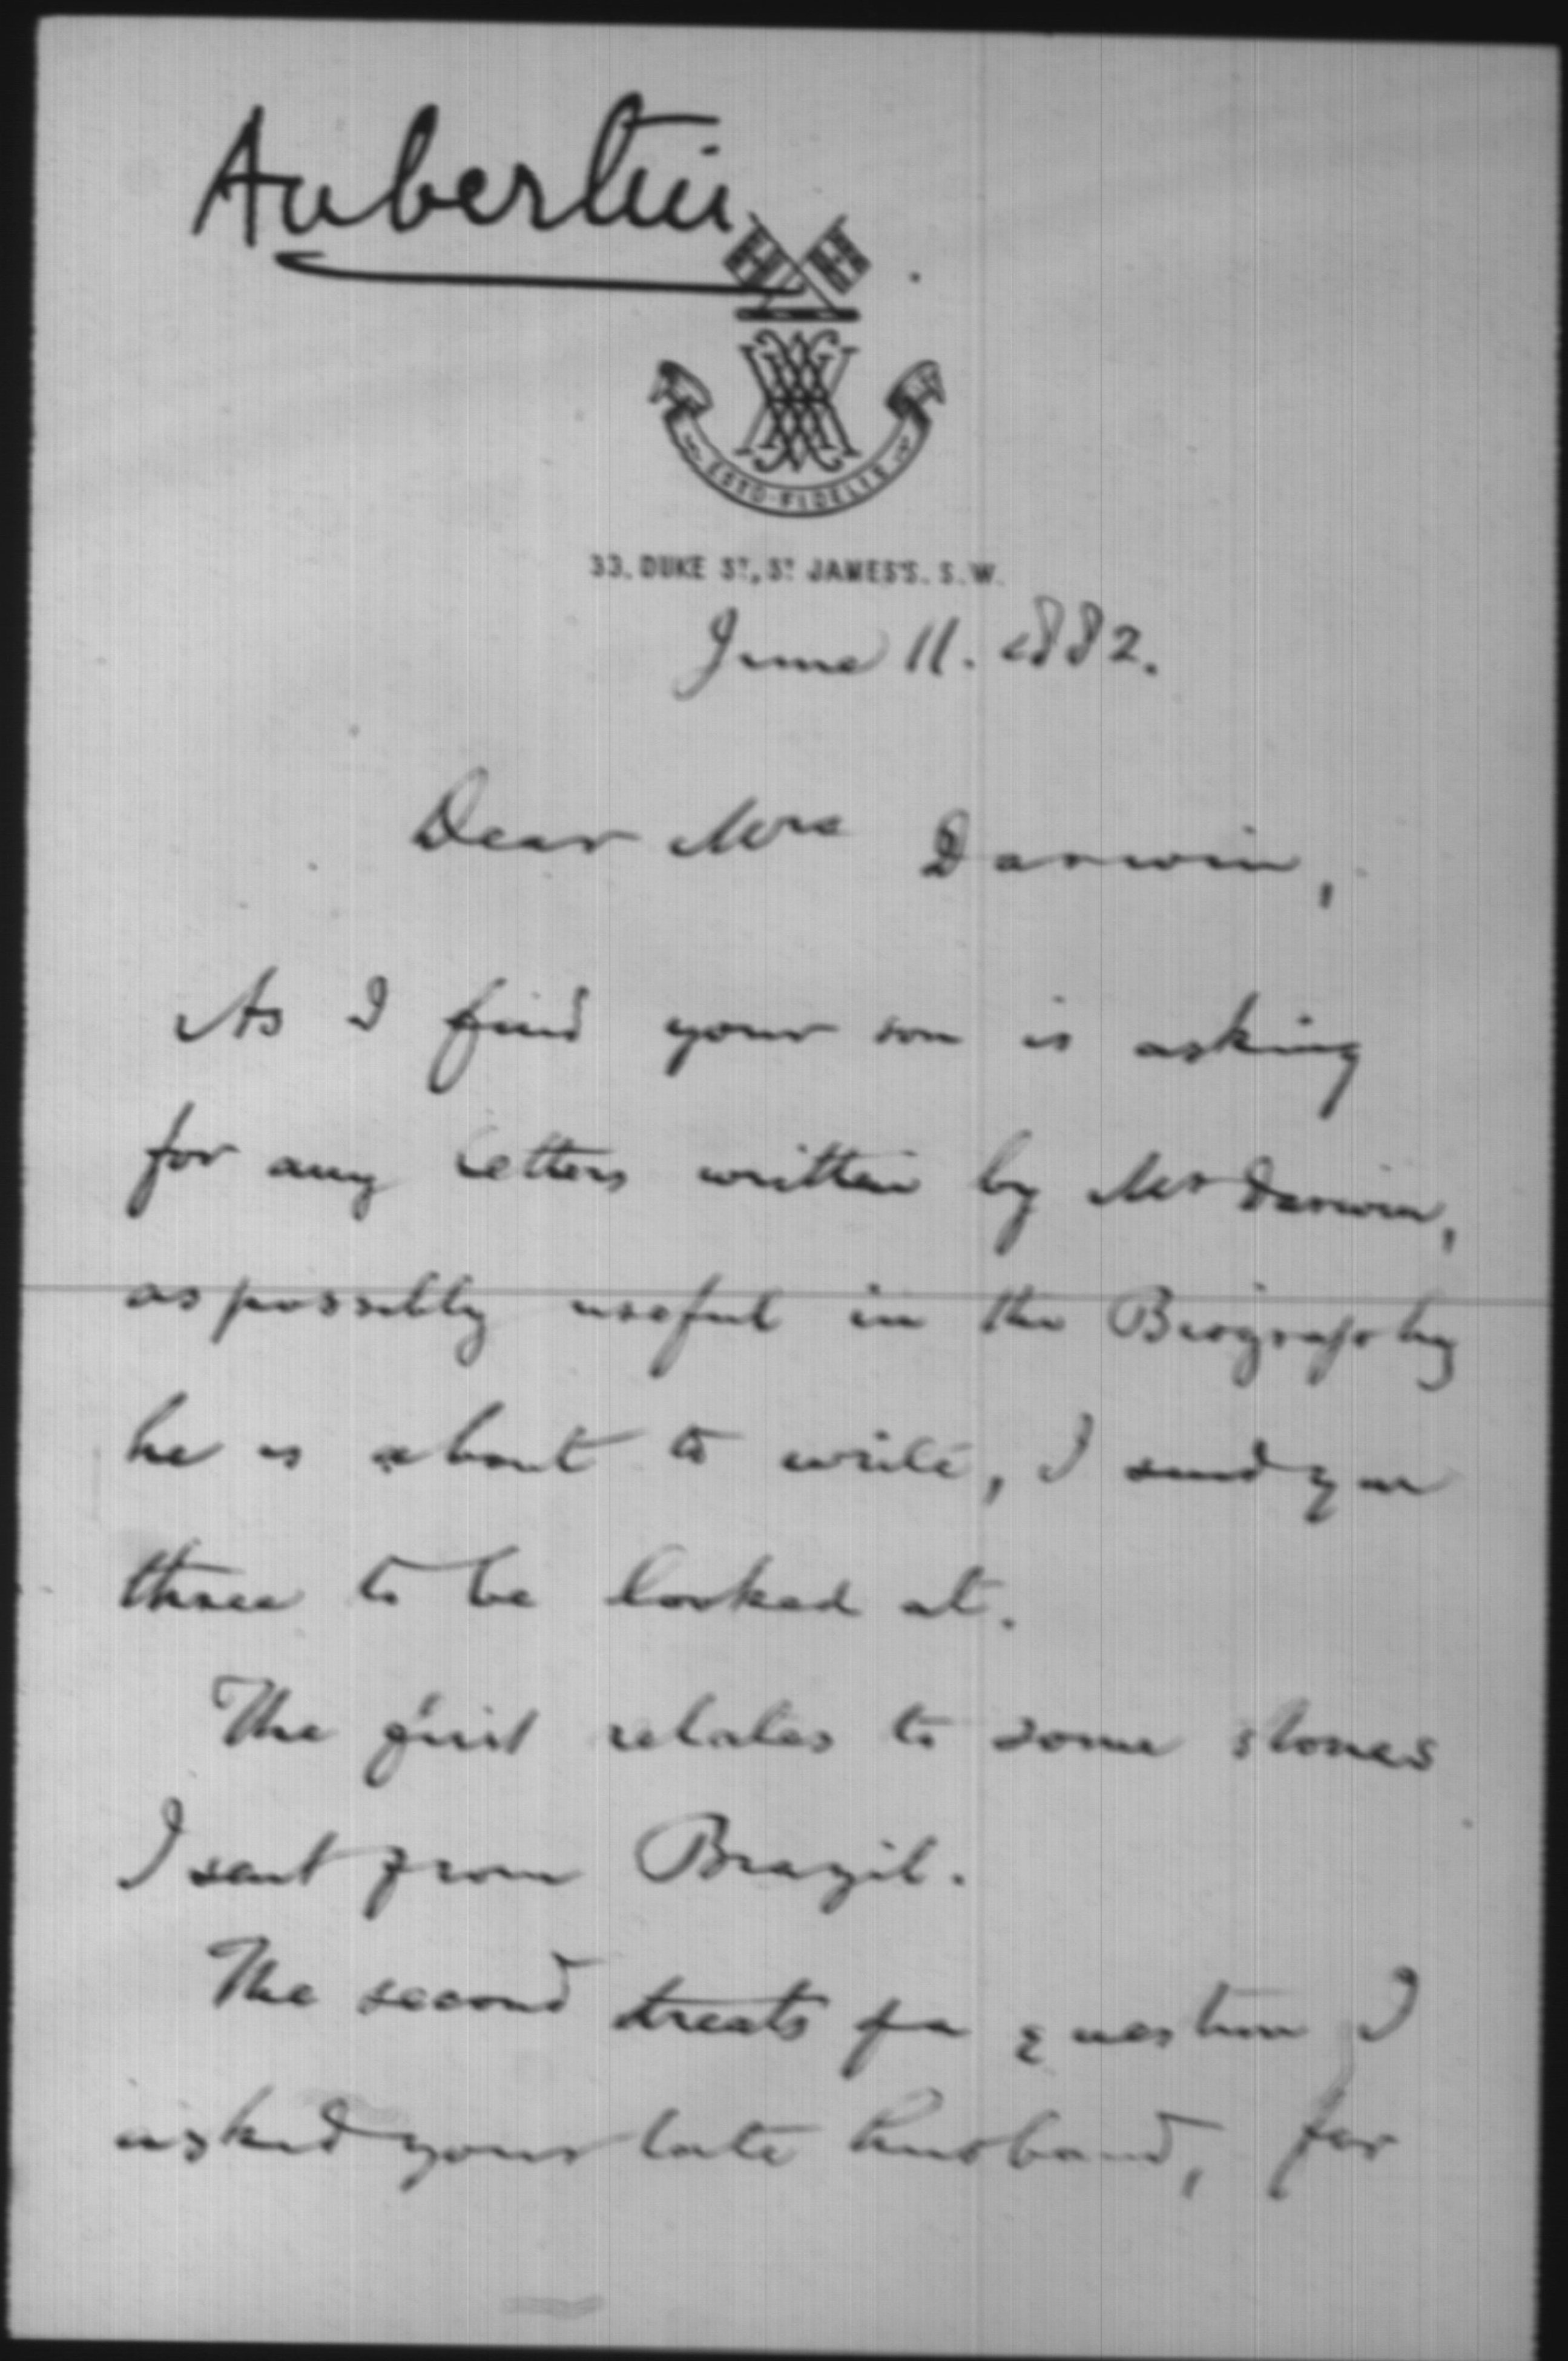 Aubertin
ESTO·FIDELIS
33. DUKE ST, ST JAMES'S. S.W.
June 11. 1882.
Dear Mrs Darwin,
As I find your son is asking
for any letters written by Mr Darwin,
as possibly useful in the Biography
he is about to write, I send you
three to be looked at.
The first relates to some stones
I sent from Brazil.
The second treats of a question I
asked your late husband, for